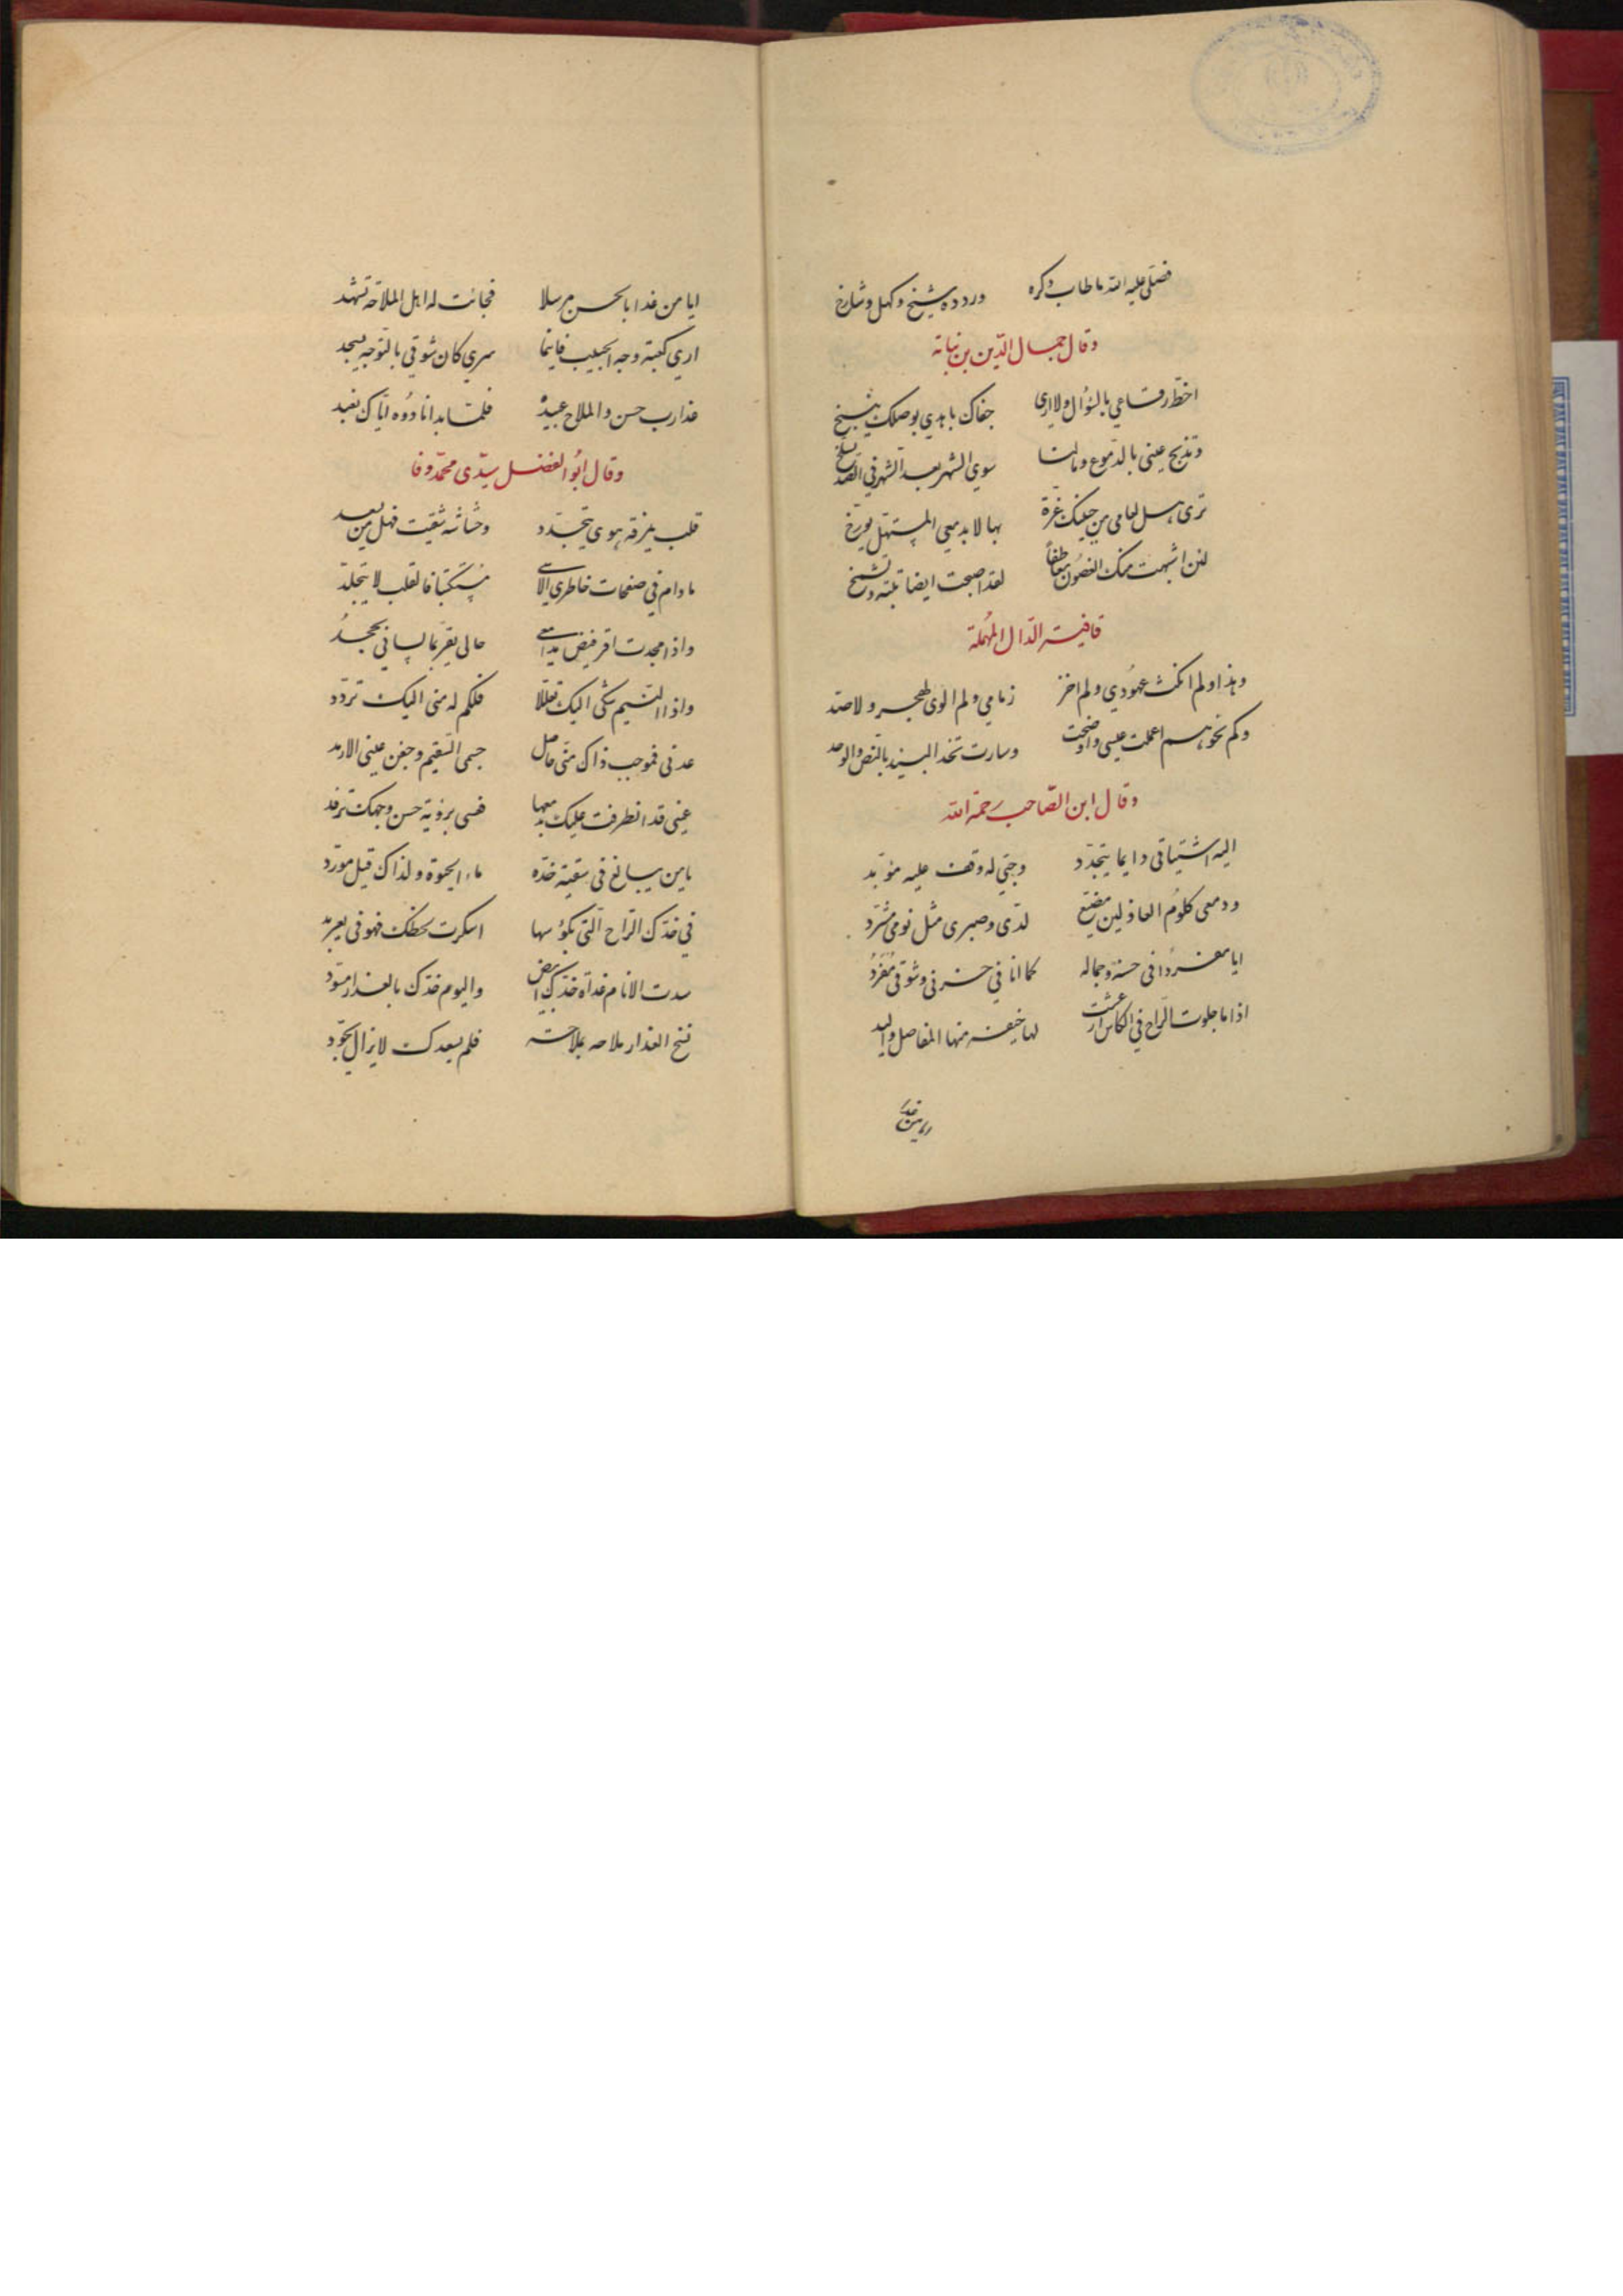 فصلى عليه الله ما طاب ذكره وردده شيخ وكهل وشارخ
وقال جمال الدّين بن نباتة
اخطّ رقاعي بالسؤال ولا ارى جفاك باهدي بوصلك ينسخ
وتذبح عيني بالدموع ومالها سوى الشهر بعد الشهر في الصدّ تسلخ
ترى هل لعامي من جبينك غرة بها لا بدمعي المستهل يورخ
لئن اشبهت منك الغصون تعاطفاً لقد اصبحت ايضا بتيه وتشمخ
قافية الدّال المهملة
وهذا ولم انكث عهودي ولم اخز زمامي ولم الوى لهجر ولا صدّ
وكم نحوهم اعملت عيسى واوضحت وسارت تخد البيد بالنص والوخد
وقال ابن الصّاحب رحمة الله
اليه اشتياقي دايما يتجدّد وحبّي له وقف عليه مؤبّد
ودمعي كلوم العاذلين مضيّع لدىّ وصبرى مثل نومى مشرّد
ايا مفردًا فى حسنه وجماله كما انا في حزنى وشوقى مُفْرَدُ
اذا ما جلوت الرّاح في الكاس ارعشت لها خيفة منها المفاصل واليد
ايا من غدا بالحسن مرسلا فجائت له اهل الملاحة تشهد
ارى كعبة وجه الحبيب فاينما سرى كان شوقي بالتوجه يسجد
غدا رب حسن والملاح عبيدهُ فلمّا بدا نادوه ايّاك نعبد
وقال ابُو الفضل سيّدى محمّد وفا
قلب يمزقه هوى يتجدّد وحشاشه شقيت فهل من يسعد
ما دام في صفحات خاطري الاسى مُستكتبًا فالقلب لا يتجلّد
واذا جحدت اقر فيض مدامعي حالى يقرّ بما لسانى يجحدُ
واذا النّسيم شكى اليك تعلّلا فلكم له منى اليك تردّد
عدنى فموجب ذاك منّى حاصل جسمى السّقيم وجفن عينى الارمد
عيني قد انطرفت عليك بدمعها فعسى برؤية حسن وجهك ترفد
يا من يبالغ في سقيته خدّه ماء الحيوة ولذاك قيل مورّد
في خدّك الرّاح الّتى بكؤسها اسكرت لحظك فهو فى يعربد
سدت الانام غداة خدّك ابيض واليوم خدّك بالعذار مسوّد
نسخ العذار ملاحه بملاحة فلم بعدك لا يزال يجوّد